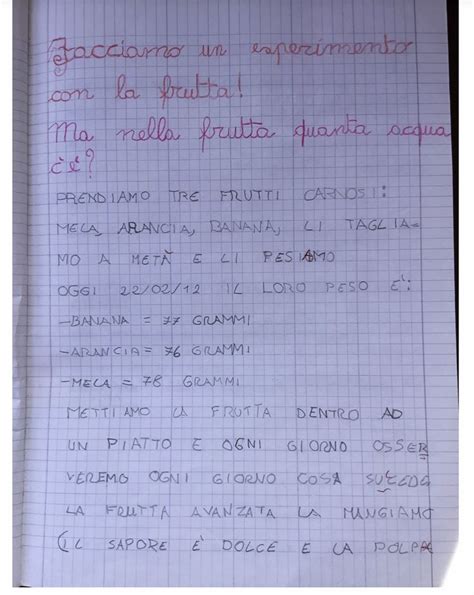 Facciamo un esperimento
con la frutta!
Ma nella frutta quanta acqua
c'è?
PRENDIAMO TRE FRUTTI CARNOSI:
MELA, ARANCIA, BANANA, LI TAGLIA-
MO A METÀ E LI PESIAMO
OGGI 22/02/12 IL LORO PESO È:
-BANANA = 77 GRAMMI
-ARANCIA = 76 GRAMMI
-MELA = 78 GRAMMI
METTIAMO LA FRUTTA DENTRO AD
UN PIATTO E OGNI GIORNO OSSER
VEREMO OGNI GIORNO COSA SUCEDE
LA FRUTTA AVANZATA LA MANGIAMO
(IL SAPORE È DOLCE E LA POLPA